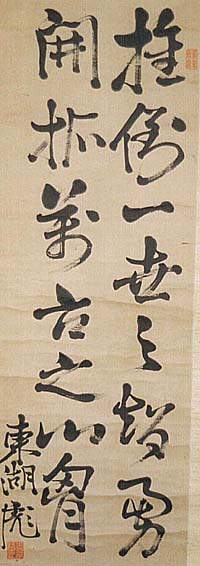 推倒一世之智勇
開拓萬古之心胷
東湖彪